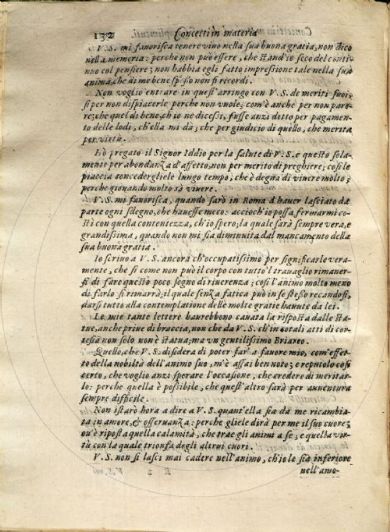 132 Concetti in materia
V. S. mi fauorisca tenere viuo nella sua buona gratia, non dico
nella memoria: perche non può essere, che stand'io seco del conti-
nuo col pensiere; non habbia egli fatto impressione tale nella sua
anima, che di me bene spesso non si ricordi.
Non voglio entrare in quest'arringo con V. S. de meriti suoi:
sì per non dispiacerle perche non vuole, com'è anche per non pare-
re; che quel di bene, ch'io ne dicessi, fusse anzi detto per pagamen-
to delle lodi, ch'ella mi dà; che per giudicio di quello, che merita
per virtù.
Hò pregato il Signor Iddio per la salute di V. S. e questo sola-
mente per abondanza d'affetto, non per merito di preghiere; così le
piaccia concedergliele lungo tempo, ch'è degna di viuere molto;
perche giouando molto sà viuere.
V. S. mi fauorisca, quando sarò in Roma d'hauer lasciato da
parte ogni sdegno, che hauesse meco: accioch'io possa fermarmi co-
stì con quella contentezza, ch'io spero; la qual sarà sempre vera, e
grandissima, quando non mi sia diminuita dal mancamento della
sua buona gratia.
Io scriuo a V. S. ancorà ch'occupatissimo per significarle vera-
mente, che sì come non può il corpo con tutto'l trauaglio rimaner-
si di fare questo poco segno di riuerenza; così l'animo molto me-
no di farlo si rimarrà; il qual senza fatica può in se stesso recandosi,
darsi tutto alla contemplatione delle molte gratie haunte da lei.
Le mie tante lettere haurebbono cauata la risposta dalle sta-
tue, anche priue di braccia, non che da V. S. ch'in cotali atti di cor-
tesia non solo non è statua; ma un gentilissimo Briareo.
Quello, che V. S. disidera di poter far' a fauore mio, com'effet-
to della nobiltà dell'animo suo, m'è assai ben noto; e reputolo così
certo, che voglio anzi sperare l'occasione, che credere di meritar-
lo: perche quella è possibile, che quest'altro sarà per auuentura
sempre difficile.
Non istarò hora a dire a V. S. quant'ella sia da me ricambia-
ta in amore, & osseruanza: perche gliele dirà per me il suo cuore;
ou'è riposta quella calamità, che trae gli animi a se; e quella vir-
tù con la quale trionfa degli altrui cuori.
V. S. non si lasci mai cadere nell'animo, ch'io le sia inferiore
nell'amo-